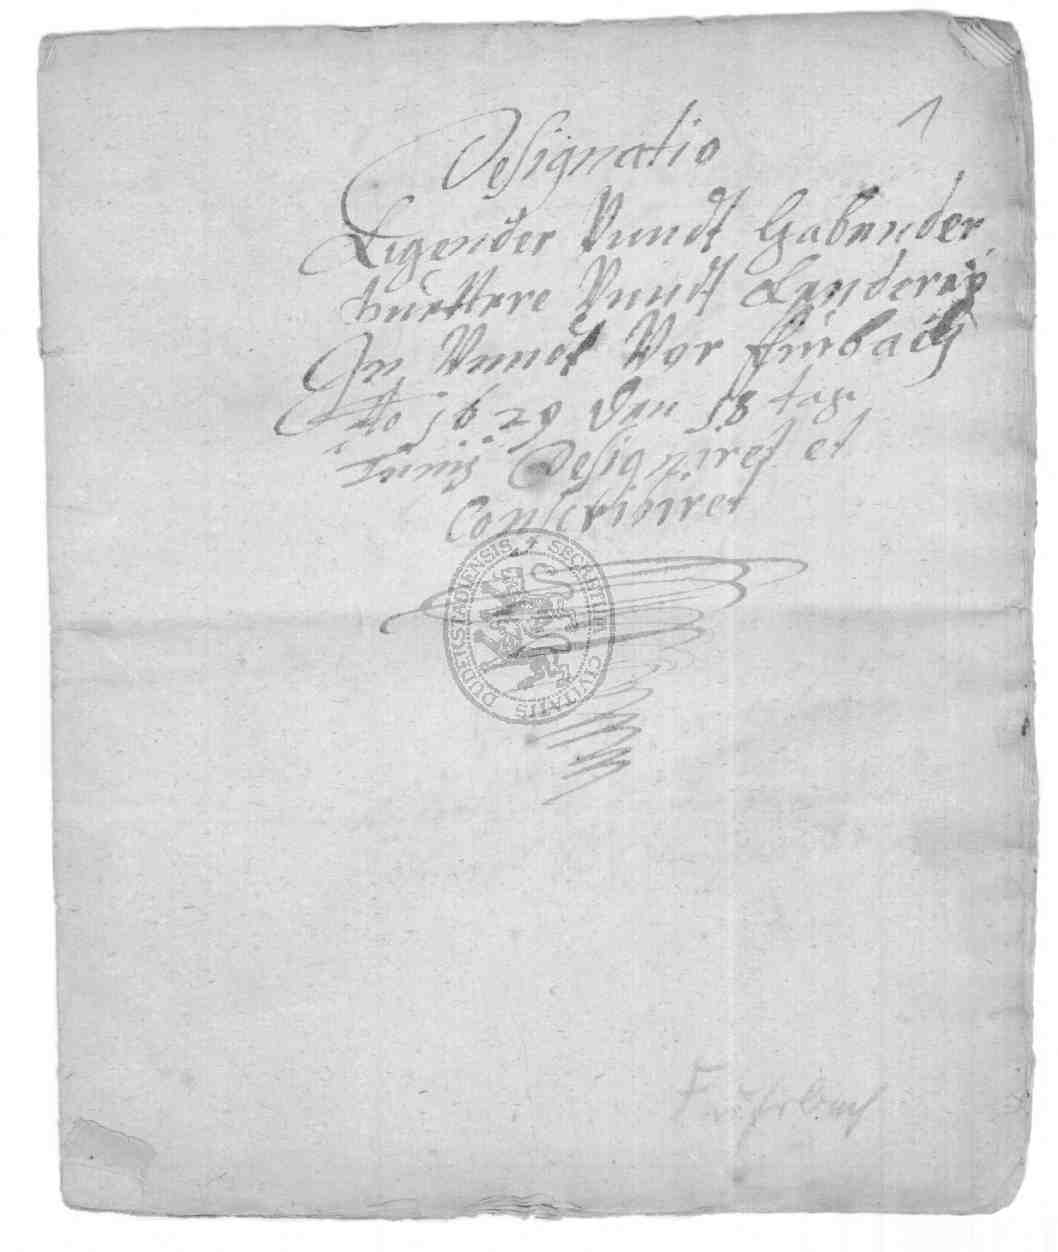 1
Designatio
Ligender Vundt Gabender
guettere Vundt Landerey
In Vundt Vor Fürbach
Ao 1629 den 18 tag
Junij Designiret et
Conscribiret
SECRETUM CIVITATIS DUDERSTADIENSIS
Fuhrbach